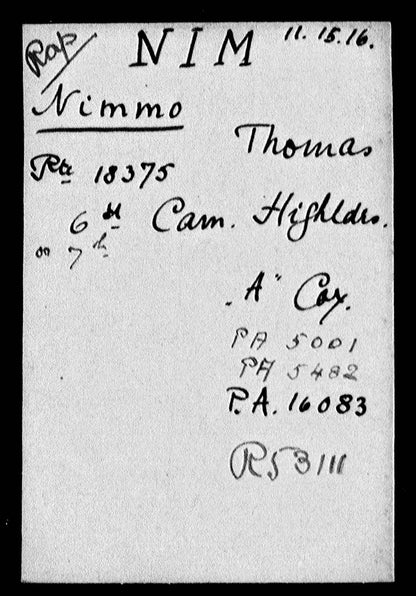 Rap
NIM 11.15.16.
Nimmo
Thomas
Pte 18375
6th Cam. Highldrs.
or 7th
"A" Coy.
PA 5001
PA 5482
P.A. 16083
R53111